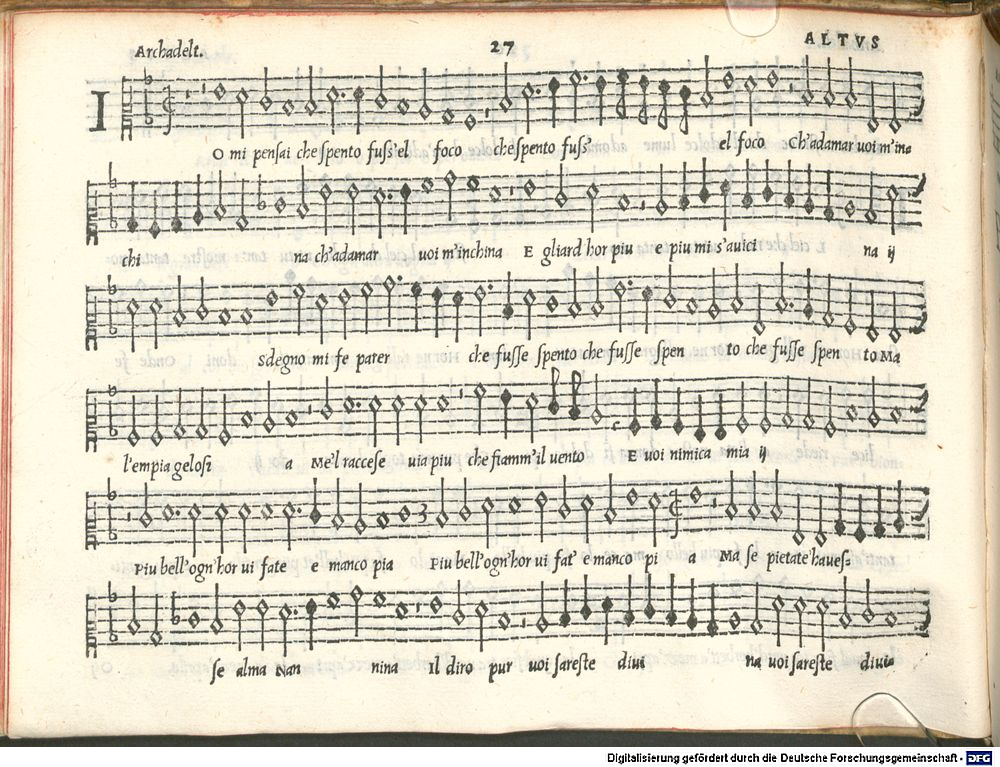 Archadelt. 27 ALTVS
I
O mi pensai che spento fuss'el foco che spento fuss' el foco Ch'adamar uoi m'in=
chi na ch'adamar uoi m'inchina E gliard hor piu e piu mi s'auici na ij
sdegno mi fe parer che fusse spento che fusse spen to che fusse spen to Ma
l'empia gelosi a Me'l raccese uia piu che fiamm'il uento E uoi nimica mia ij
3
Piu bell'ogn'hor ui fate e manco pia Piu bell'ogn'hor ui fat e manco pi a Ma se pietate haues=
se alma Nan nina Il diro pur uoi sareste diui na uoi sareste diuia
Digitalisierung gefördert durch die Deutsche Forschungsgemeinschaft - DFG